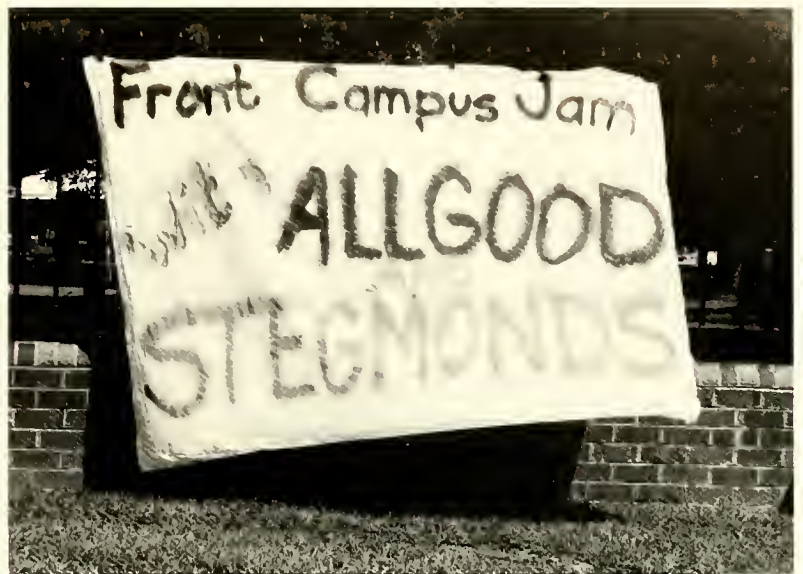 Front Campus Jam
with ALLGOOD
STEGMONDS